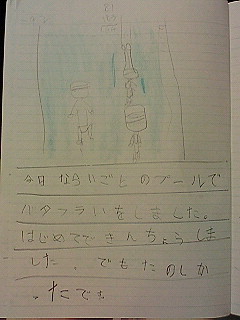 今日ならいごとのプールで
バタフライをしました。
はじめてできんちょうしま
した。でもたのしか
ったでも